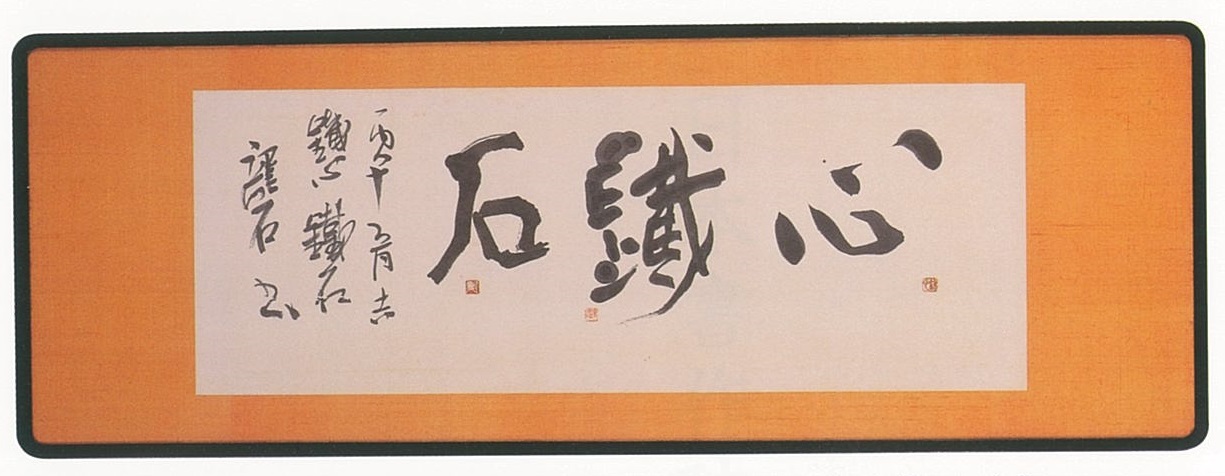 心鐵石
丙午月吉
鐵心鐵石
石书